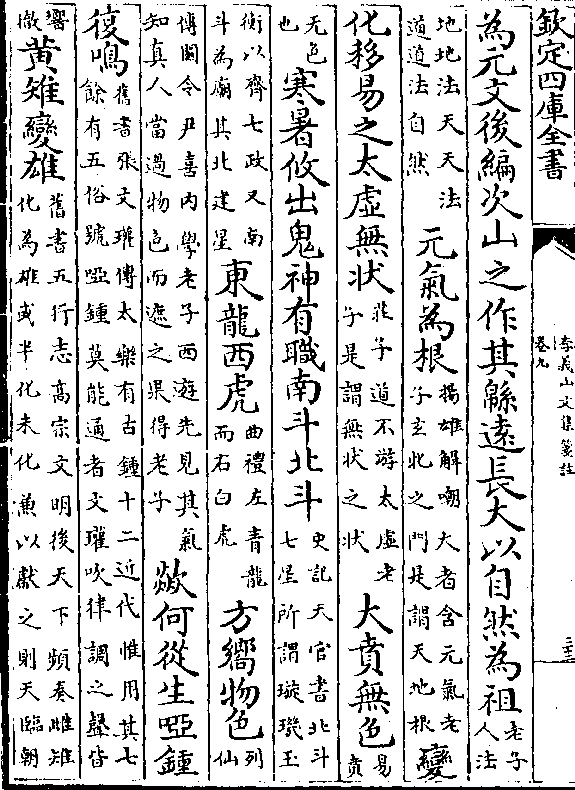 欽定四庫全書
李義山文集箋註
卷九
為元文後編次山之作其緜遠長大以自然為祖老子人法
地地法天天法道道法自然元氣為根揚雄解嘲大者含元氣老子玄牝之門是謂天地根變
化移易之太虛無狀莊子道不游太虛老子是謂無狀之狀大賁無色易賁
无色也寒暑攸出鬼神有職南斗北斗史記天官書北斗七星所謂璇璣玉
衡以齊七政又南斗為廟其北建星東龍西虎曲禮左青龍而右白虎方嚮物色列仙
傳關令尹喜内學老子西遊先見其氣知真人當過物色而遮之果得老子歘何從生啞鍾
復鳴舊書張文瓘傳太樂有古鍾十二近代惟用其七餘有五俗號啞鍾莫能通者文瓘吹律調之聲皆
響徹黃雉變雄舊書五行志高宗文明後天下頻奏雌雉化為雄或半化未化兼以獻之則天臨朝